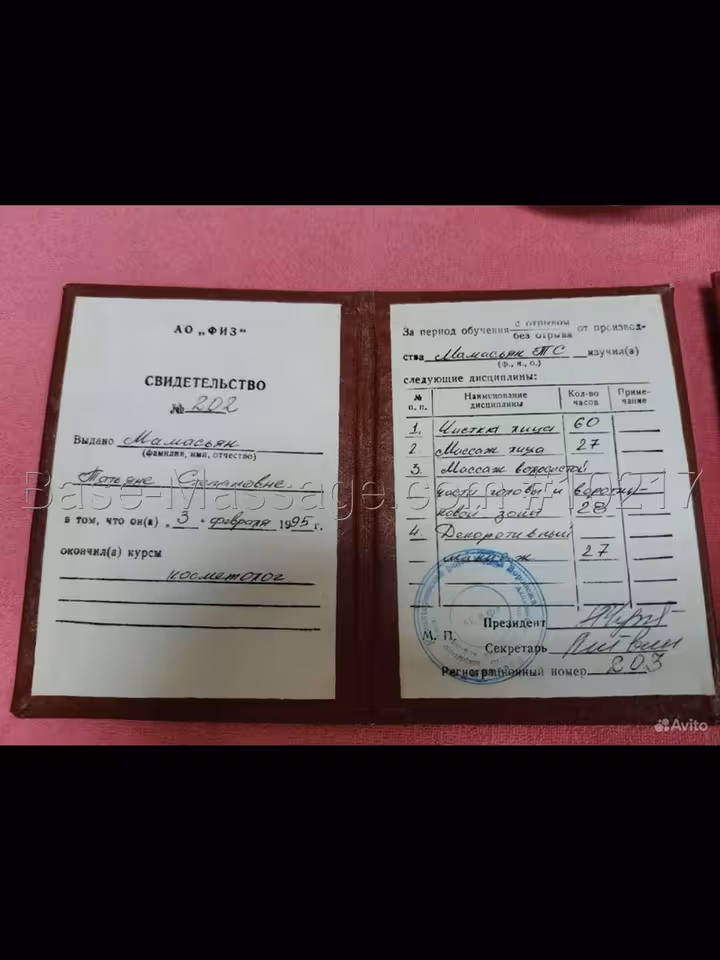 АО „ФИЗ"
СВИДЕТЕЛЬСТВО
№ 202
Выдано Мамасьян
(фамилия, имя, отчество)
Татьяне Степановне
в том, что он(а) „3" февраля 1995 г.
окончил(а) курсы
косметолог
За период обучения с отрывом от производ-
без отрыва
ства Мамасьян ТС изучил(а)
(ф., и., о.)
следующие дисциплины:
№ п. п. Наименование дисциплины Кол-во часов Приме- чание
1. Чистка лица 60
2. Массаж лица 27
3. Массаж волосистой
части головы и воротни-
ковой зоны 28
4. Декоративный
макияж 27
Президент
М. П.
Секретарь
Регистрационный номер 203
Base-Massage.com #19217
Avito